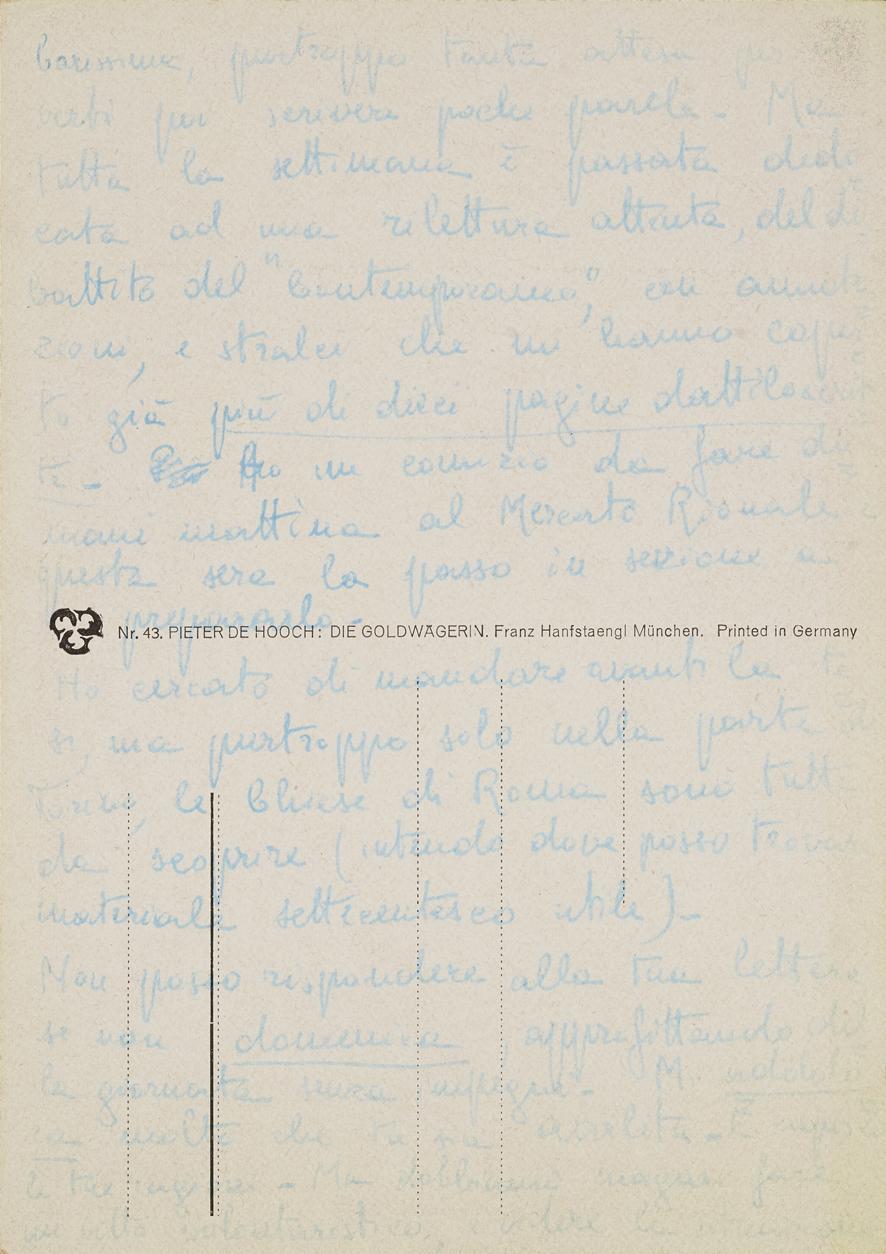 Carissima, purtroppo tanta attesa per
verti poi scrivere poche parole. Ma
tutta la settimana è passata dedi=
cata ad una rilettura attenta, del di=
battito del "Contemporaneo", con annota=
zioni, e stralci che mi hanno capi=
to già più di dieci pagine dattiloscrit
te. Ho un comizio da fare do=
mani mattina al Mercato Rionale e
questa sera la passo in sezione a
prepararlo.
Nr. 43. PIETER DE HOOCH: DIE GOLDWÄGERIN. Franz Hanfstaengl München. Printed in Germany
Ho cercato di mandare avanti la te
si, ma purtroppo solo nella parte di
Torino, le Chiese di Roma sono tutte
da scoprire (intendo dove posso trovare
materiale settecentesco utile).
Non posso rispondere alla tua lettera
se non domenica, approfittando del
la giornata senza impegni. M'addolo
ra molto che tu sia avvilita. È
le tue ragioni. Ma dobbiamo magari fare
un volo volontaristico, e vedere la